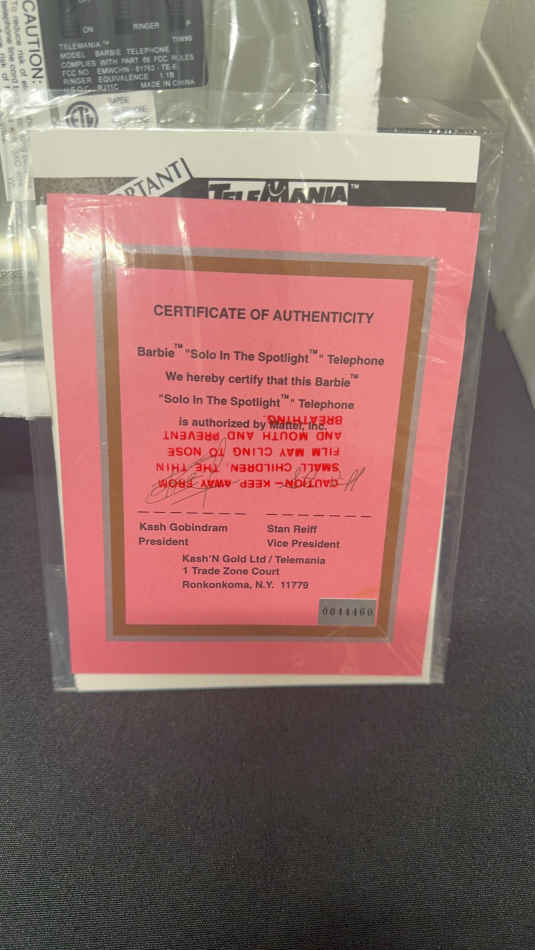 CAUTION:
To reduce risk of
telephone line cord
ON
RINGER
TELEMANIA™
MODEL BARBIE TELEPHONE
COMPLIES WITH PART 68 FCC RULES
RINGER EQUIVALENCE 1.1B
U.S.O.C. RJ11C MADE IN CHINA
ETL
TELEMANIA™
CERTIFICATE OF AUTHENTICITY
Barbie™ "Solo In The Spotlight™" Telephone
We hereby certify that this Barbie™
"Solo In The Spotlight™" Telephone
is authorized by Mattel, Inc.
CAUTION—KEEP AWAY FROM
SMALL CHILDREN. THE THIN
FILM MAY CLING TO NOSE
AND MOUTH AND PREVENT
BREATHING.
Kash Gobindram
President
Stan Reiff
Vice President
Kash'N Gold Ltd / Telemania
1 Trade Zone Court
Ronkonkoma, N.Y. 11779
0044460